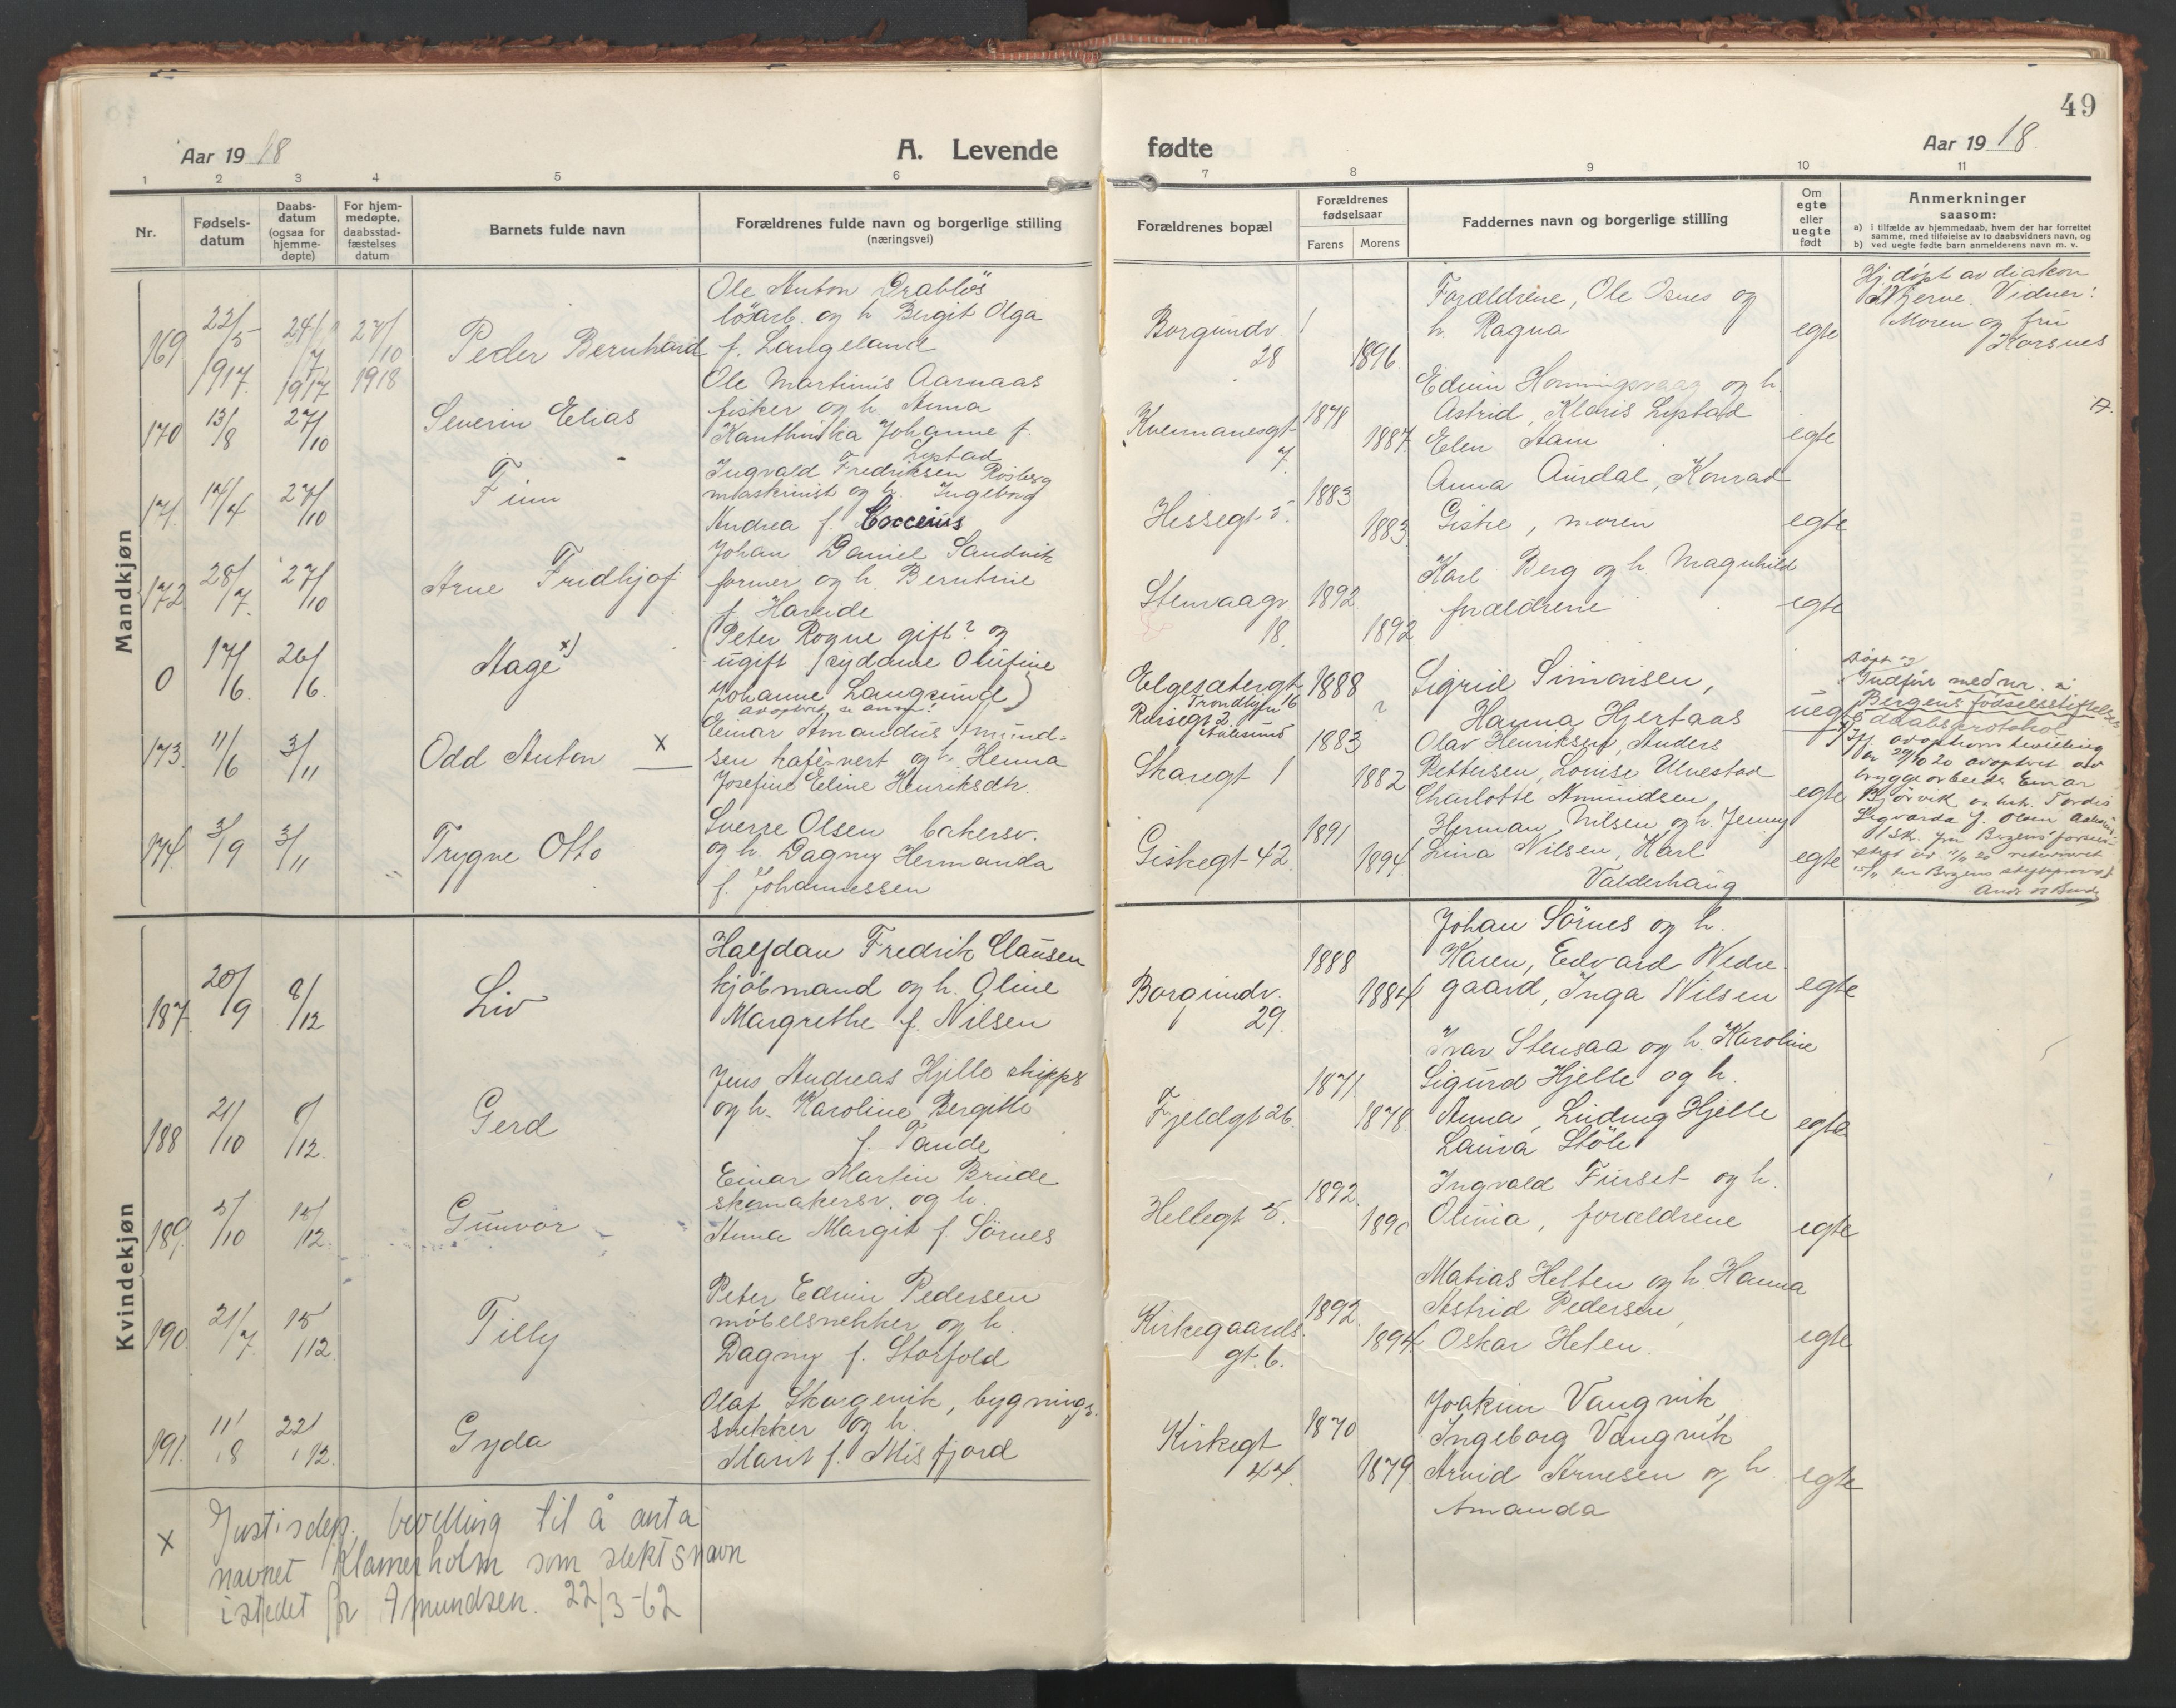 49
Aar 1918
A. Levende
fødte
Aar 1918.
1 2 3 4 5 6 7 8 9 10 11
Nr.
Fødsels-
datum
Daabs-
datum
(ogsaa for
hjemme-
døpte)
For hjem-
medøpte,
daabsstad-
fæstelses
datum
Barnets fulde navn
Forældrenes fulde navn og borgerlige stilling
(næringsvei)
Forældrenes bopæl
Forældrenes
fødselsaar
Farens Morens
Faddernes navn og borgerlige stilling
Om
egte
eller
uegte
født
Anmerkninger
saasom:
a) i tilfælde av hjemmedaab, hvem der har forrettet
samme, med tilføielse av to daabsvidners navn, og
b) ved uegte fødte barn anmelderens navn m. v.
Mandkjøn
169
22/5
1917.
24/7
1917
27/10
1918
Peder Bernhard
Ole Anton Drabløs
løsarb. og h. Bergit Olga
f. Langeland
Borgundv.
28
1896.
Forældrene, Ole Osnes og
h. Ragna
egte
Hj. døpt av diakon
Vidner:
Moren og fru
Korsnes
170
13/8
27/10
Severin Elias
Ole Martinus Aarnaas
fisker og h. Anna
Kanthinka Johanne f.
Lystad
7.
1878
1887.
Edvin Honningsvaag og h.
Astrid, Klaris Lystad
Elen Stam
egte
171.
14/4
27/10
Finn
Ingvald Fredriksen Rosberg
maskinist og h. Ingeborg
Andrea f. Coccenius
Hessegt 5.
1883
1883.
Anna Aursdal, Konrad
Giske, moren
egte
172
28/7.
27/10
Arne Fridhjof
Johan Daniel Sandvik
former og h. Berntine
f. Hareide
Stenvaagv
18.
1892
1892
Karl Berg og h. Magnhild
forældrene
egte
0
17/6.
26/6.
Aage x)
(Peter Rogne gift? og
ugift sydame Olufine
Johanne Langsund)
adoptert, se anm!
Elgesætergt
Trondhjem 16
Aalesund
1888
?
Sigrid Simonsen,
Hanna Hjertaas
uegte
døpt og
Indført med nr. i
Bergens fødselsstiftelses
daabsprotokol
x) Iflg. adoptionsbevilling
av 29/10 20 adoptert av
bryggearbeider Einar
Bjørvik og hst. Tordis
Sigvarda f. Olsen Aalesund.
173.
11/6
3/11
Odd Anton x
Einar Amandus Amund-
sen kafévert og h. Henna
Josefine Eline Henriksdtr.
Skaregt 1
1883
1882
Olav Henriksen, Anders
Pettersen, Lovise Ulvestad
Charlotte Amundsen
egte
174
3/9
3/11
Trygve Otto
Sverre Olsen bakersv.
og h. Dagny Hermanda
f. Johannessen
Giskegt 42
1891
1894.
Herman Nilsen og h. Jenny
Lina Nilsen, Karl
Valderhaug
egte
Kvindekjøn
187.
20/9
8/12
Liv
Halfdan Fredrik Clausen
kjøbmand og h. Oline
Margrethe f. Nilsen
Borgundv.
29.
1888
1884
Johan Sørnes og h.
Karen, Edvard Nedre
gaard, Inga Nilsen
egte
188
21/10
8/12.
Gerd
Jens Andreas Hjelle skipps
og h. Karoline Bergitte
f. Tande
Fjeldgt 26.
1871.
1878.
Ivar Stensaa og h. Karoline
Sigurd Hjelle og h.
Anna, Ludvig Hjelle
Laura Støle
egte
189.
5/10
15/12.
Gunvor
Einar Martin Brude
skomakersv. og h.
Anna Margit f. Sørnes
Hellegt 5.
1892.
Ingvald Furset og h.
Olivia, forældrene
egte
190.
21/7.
15/12.
Tilly
Peter Edvin Pedersen
møbelsnekker og h.
Dagny f. Storfold
Kirkegaards.
gt. 6.
1892.
1894
Matias Helten og h. Hanna
Astrid Pedersen,
Oskar Helen.
egte
191.
11/8
22/12.
Gyda
Olaf Skagevik, bygnings.
snikker og h.
Marit f. Misfjord
Kirkegt
44.
1870
1879
Joakim Vangvik
Ingeborg Vangvik
Arvid Arnesen og h.
Amanda
egte
x Justisdep. bevilling til å anta
navnet Klamerholm som slektsnavn
istedet for Amundsen. 22/3-62